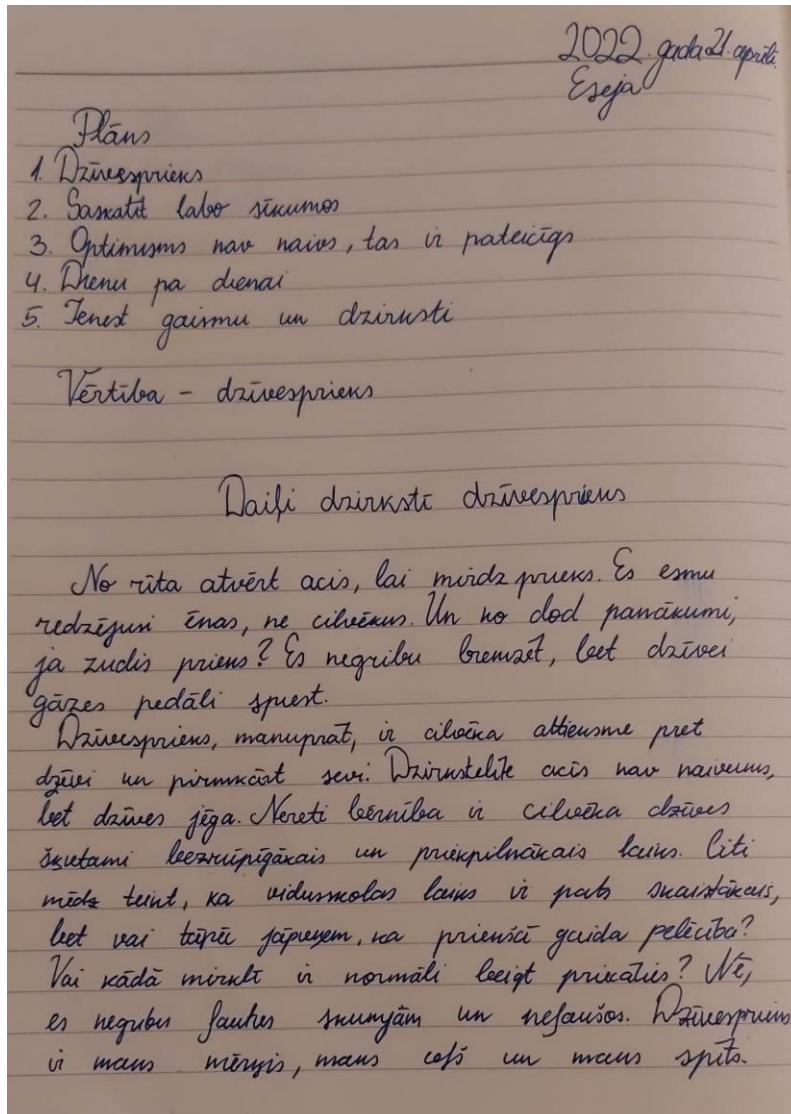 2022. gada 21. aprīlī.
Eseja
Plāns
1. Dzīvesprieks
2. Saskatīt labo sīkumos
3. Optimisms nav naivs, tas ir pateicīgs
4. Dienu pa dienai
5. Ienest gaismu un dzirksti
Vērtība - dzīvesprieks
Daiļi dzirkstī dzīvesprieks
No rīta atvērt acis, lai mirdz prieks. Es esmu
redzējusi ēnas, ne cilvēkus. Un ko dod panākumi,
ja zudis prieks? Es negribu bremzēt, bet dzīvei
gāzes pedāli spiest.
Dzīvesprieks, manuprāt, ir cilvēka attieksme pret
dzīvi un pirmkārt sevi. Dzirkstelīte acīs nav naivums,
bet dzīves jēga. Nereti bērnība ir cilvēka dzīves
šķietami bezrūpīgākais un priekpilnākais laiks. Citi
mēdz teikt, ka vidusskolas laiks ir pats skaistākais,
bet vai tāpēc jāpieņem, ka priekšā gaida pelēcība?
Vai kādā mirklī ir normāli beigt priecāties? Nē,
es negribu ļauties skumjām un neļaušos. Dzīvesprieks
ir mans mērķis, mans ceļš un mans spīts.